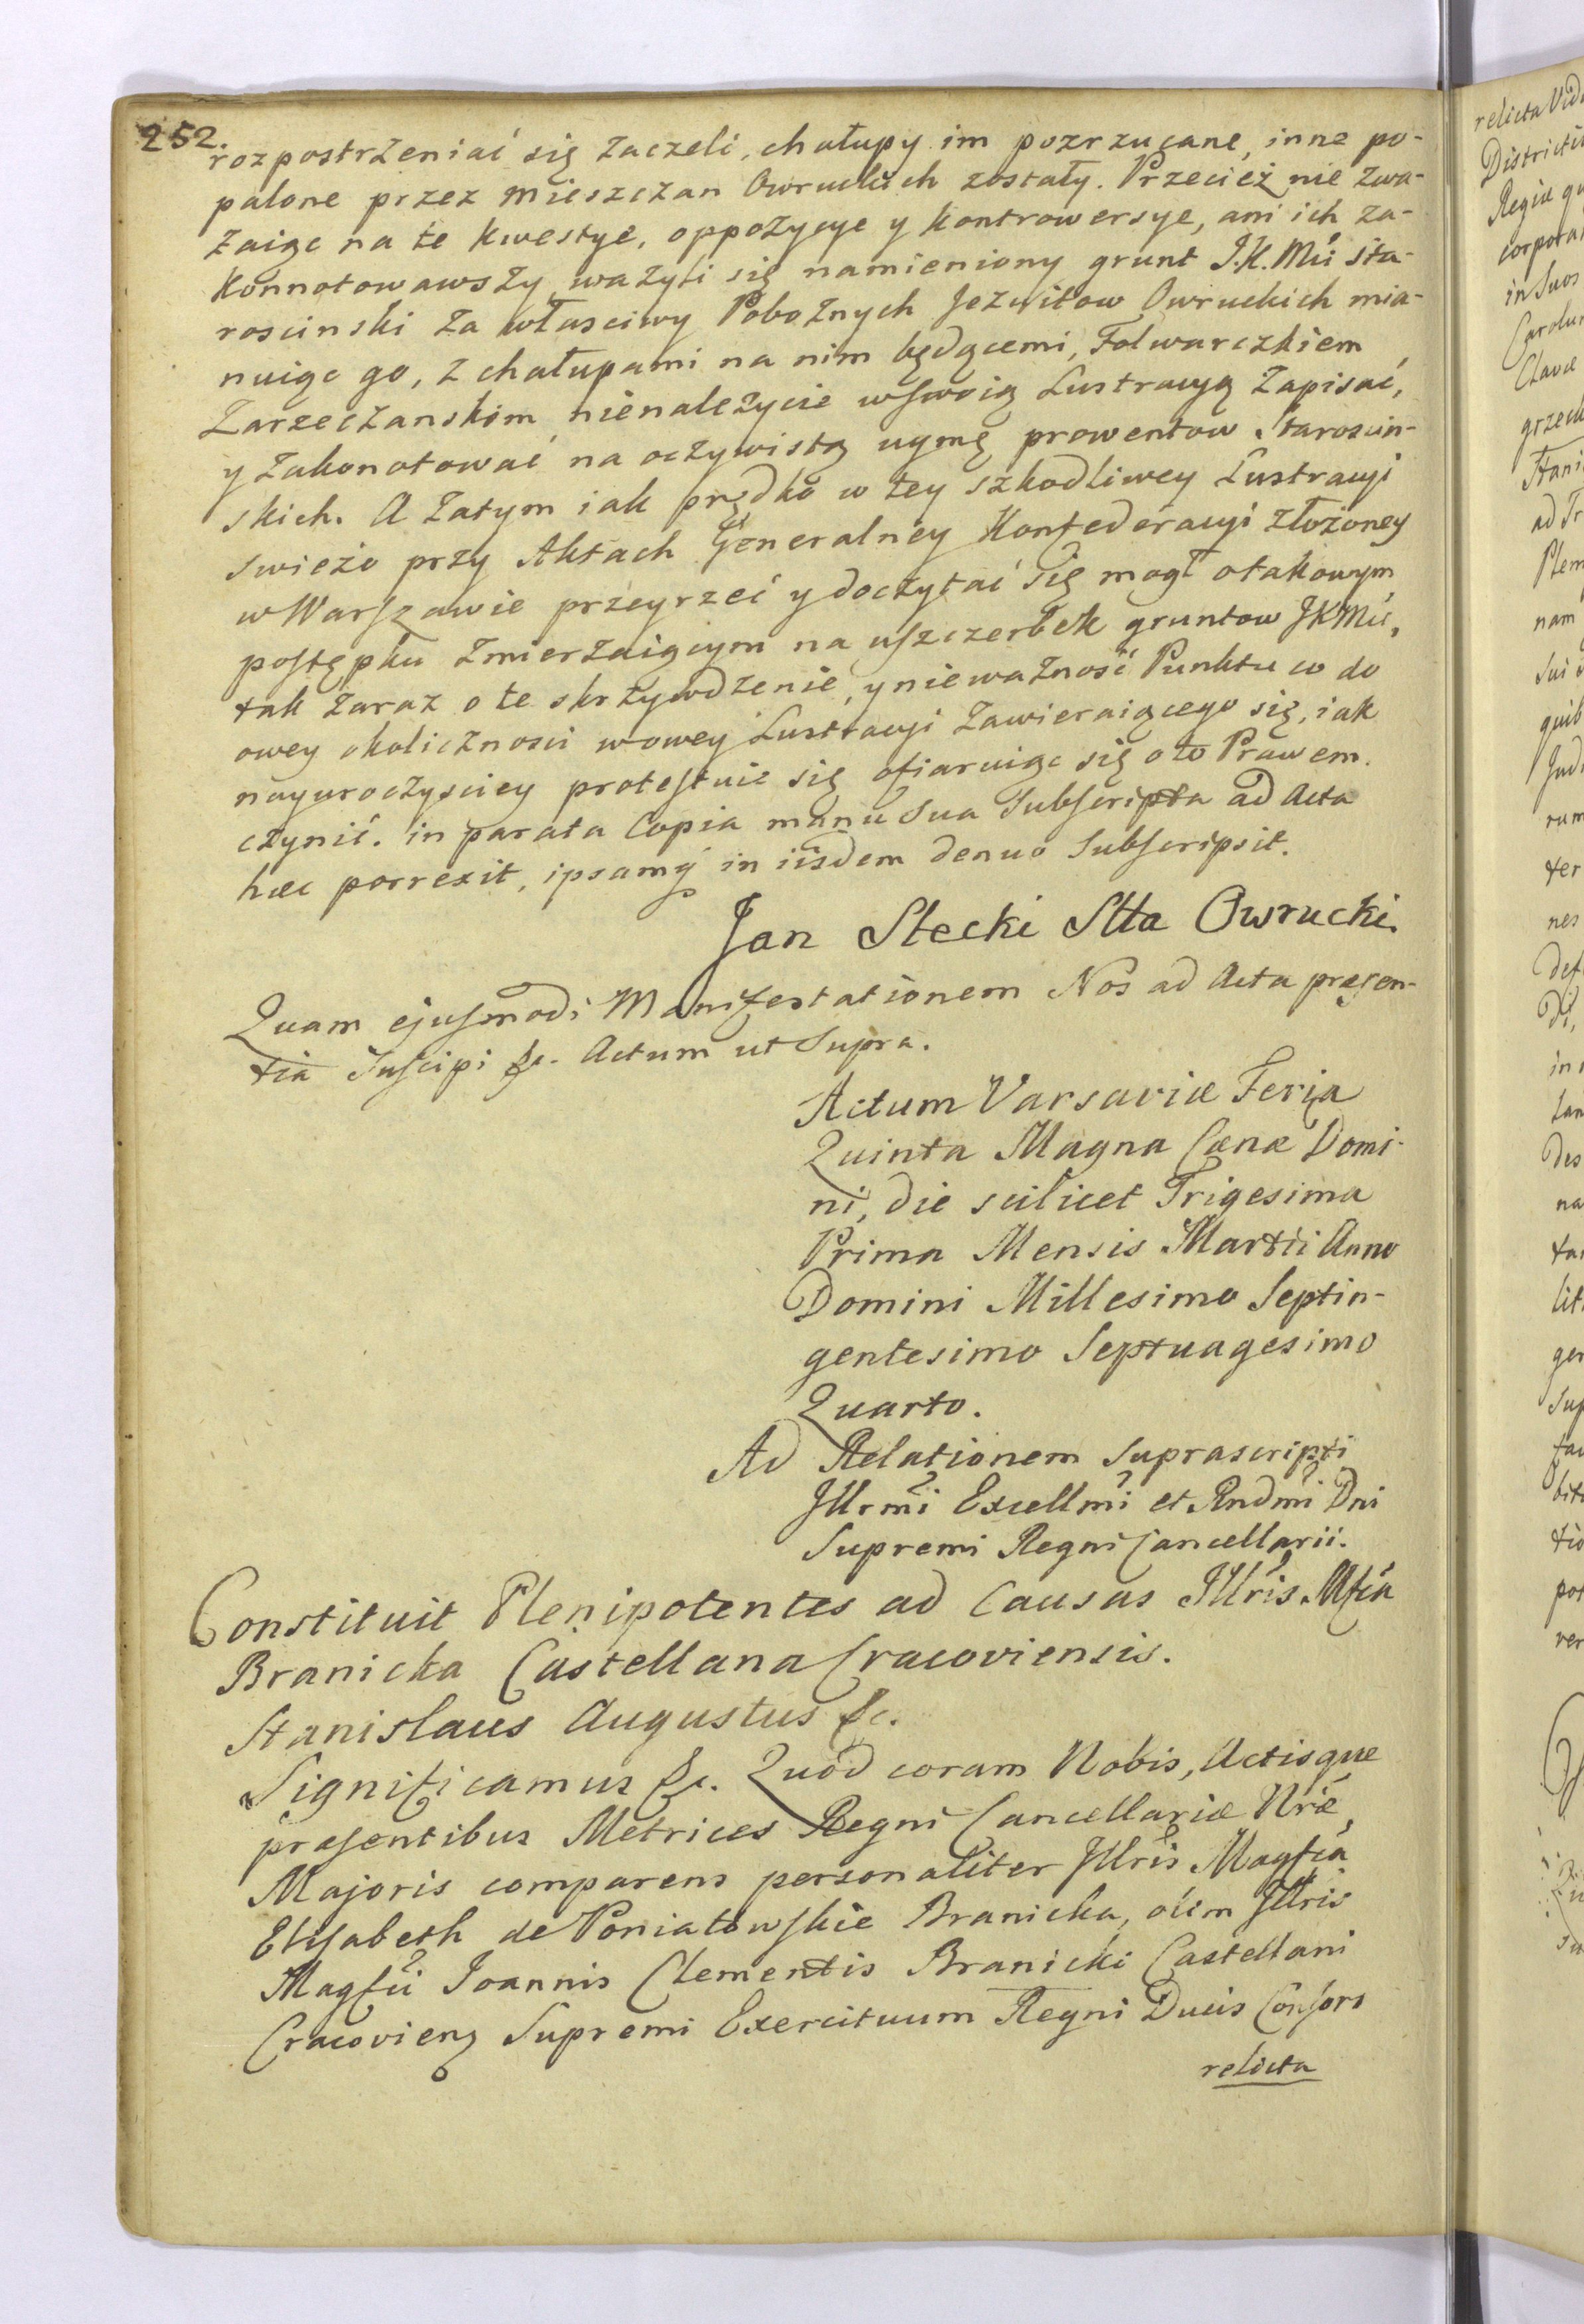 252.
rozpostrzeniać się zaczeli, chałupy im pozrzucane, inne po-
palone przez Mieszczan Owruckich zostały. Przecież nie zwa-
zaiąc na te kwestye, oppozycye y kontrowersye, ani ich za-
konnotowawszy ważyli się namieniony grunt J.K.Mći sta-
roscinski za własciwy Pobożnych Jezuitow Owruckich mia-
nuiąc go, z chałupami na nim będącemi, Folwarczkiem
Zarzeczanskim, nienależycie w swoią Lustracyą zapisać,
y zakonotować na oczywistą uymę prowentow Staroscin-
skich. A zatym iak prędko w tey szkodliwey Lustracyi
swieżo przy Aktach Generalney Konfederacyi złożoney
w Warszawie przeyrzeć y doczytać się mogł o takowym
postępku zmierzaiącym na uszczerbek gruntow JKMći,
tak zaraz o te skrzywdzenie, y nieważność Punktu co do
owey okoliczności w owey Lustracyi zawieraiącego się, iak
nayuroczysciey protestuie się ofiaruiąc się o to Prawem
czynić. in parata Copia manu Sua Subscripta ad Acta
hæc porrexit, ipsamq́ in iisdem denuo Subscripsit.
Jan Stecki Stta Owrucki.
Quam ejusmodi Manifestationem Nos ad Acta præsen-
tia Suscipi &c. Actum ut Supra.
Actum Varsaviæ Feria
Quinta Magna Cænæ Domi-
ni, die scilicet Trigesima
Prima Mensis Martii Anno
Domini Millesimo Septin-
gentesimo Septuagesimo
Quarto.
Ad Relationem Suprascripti
Illrmi Excellmi et Rndmi Dni
Supremi Regni Cancellarii.
Constituit Plenipotentes ad Causas Illris Mfca
Branicka Castellana Cracoviensis.
Stanislaus Augustus &c.
Significamus &c. Quod coram Nobis, Actisque
præsentibus Metrices Regni Cancellariæ Nræ,
Majoris comparens personaliter Illris Magfca
Elisabeth de Poniatowskie Branicka, olim Illris
Magfci Joannis Clementis Branicki Castellani
Cracovien Supremi Exercituum Regni Ducis Consors
relicta
relicta
Regiæ
in Suos
nam
nes
in
na